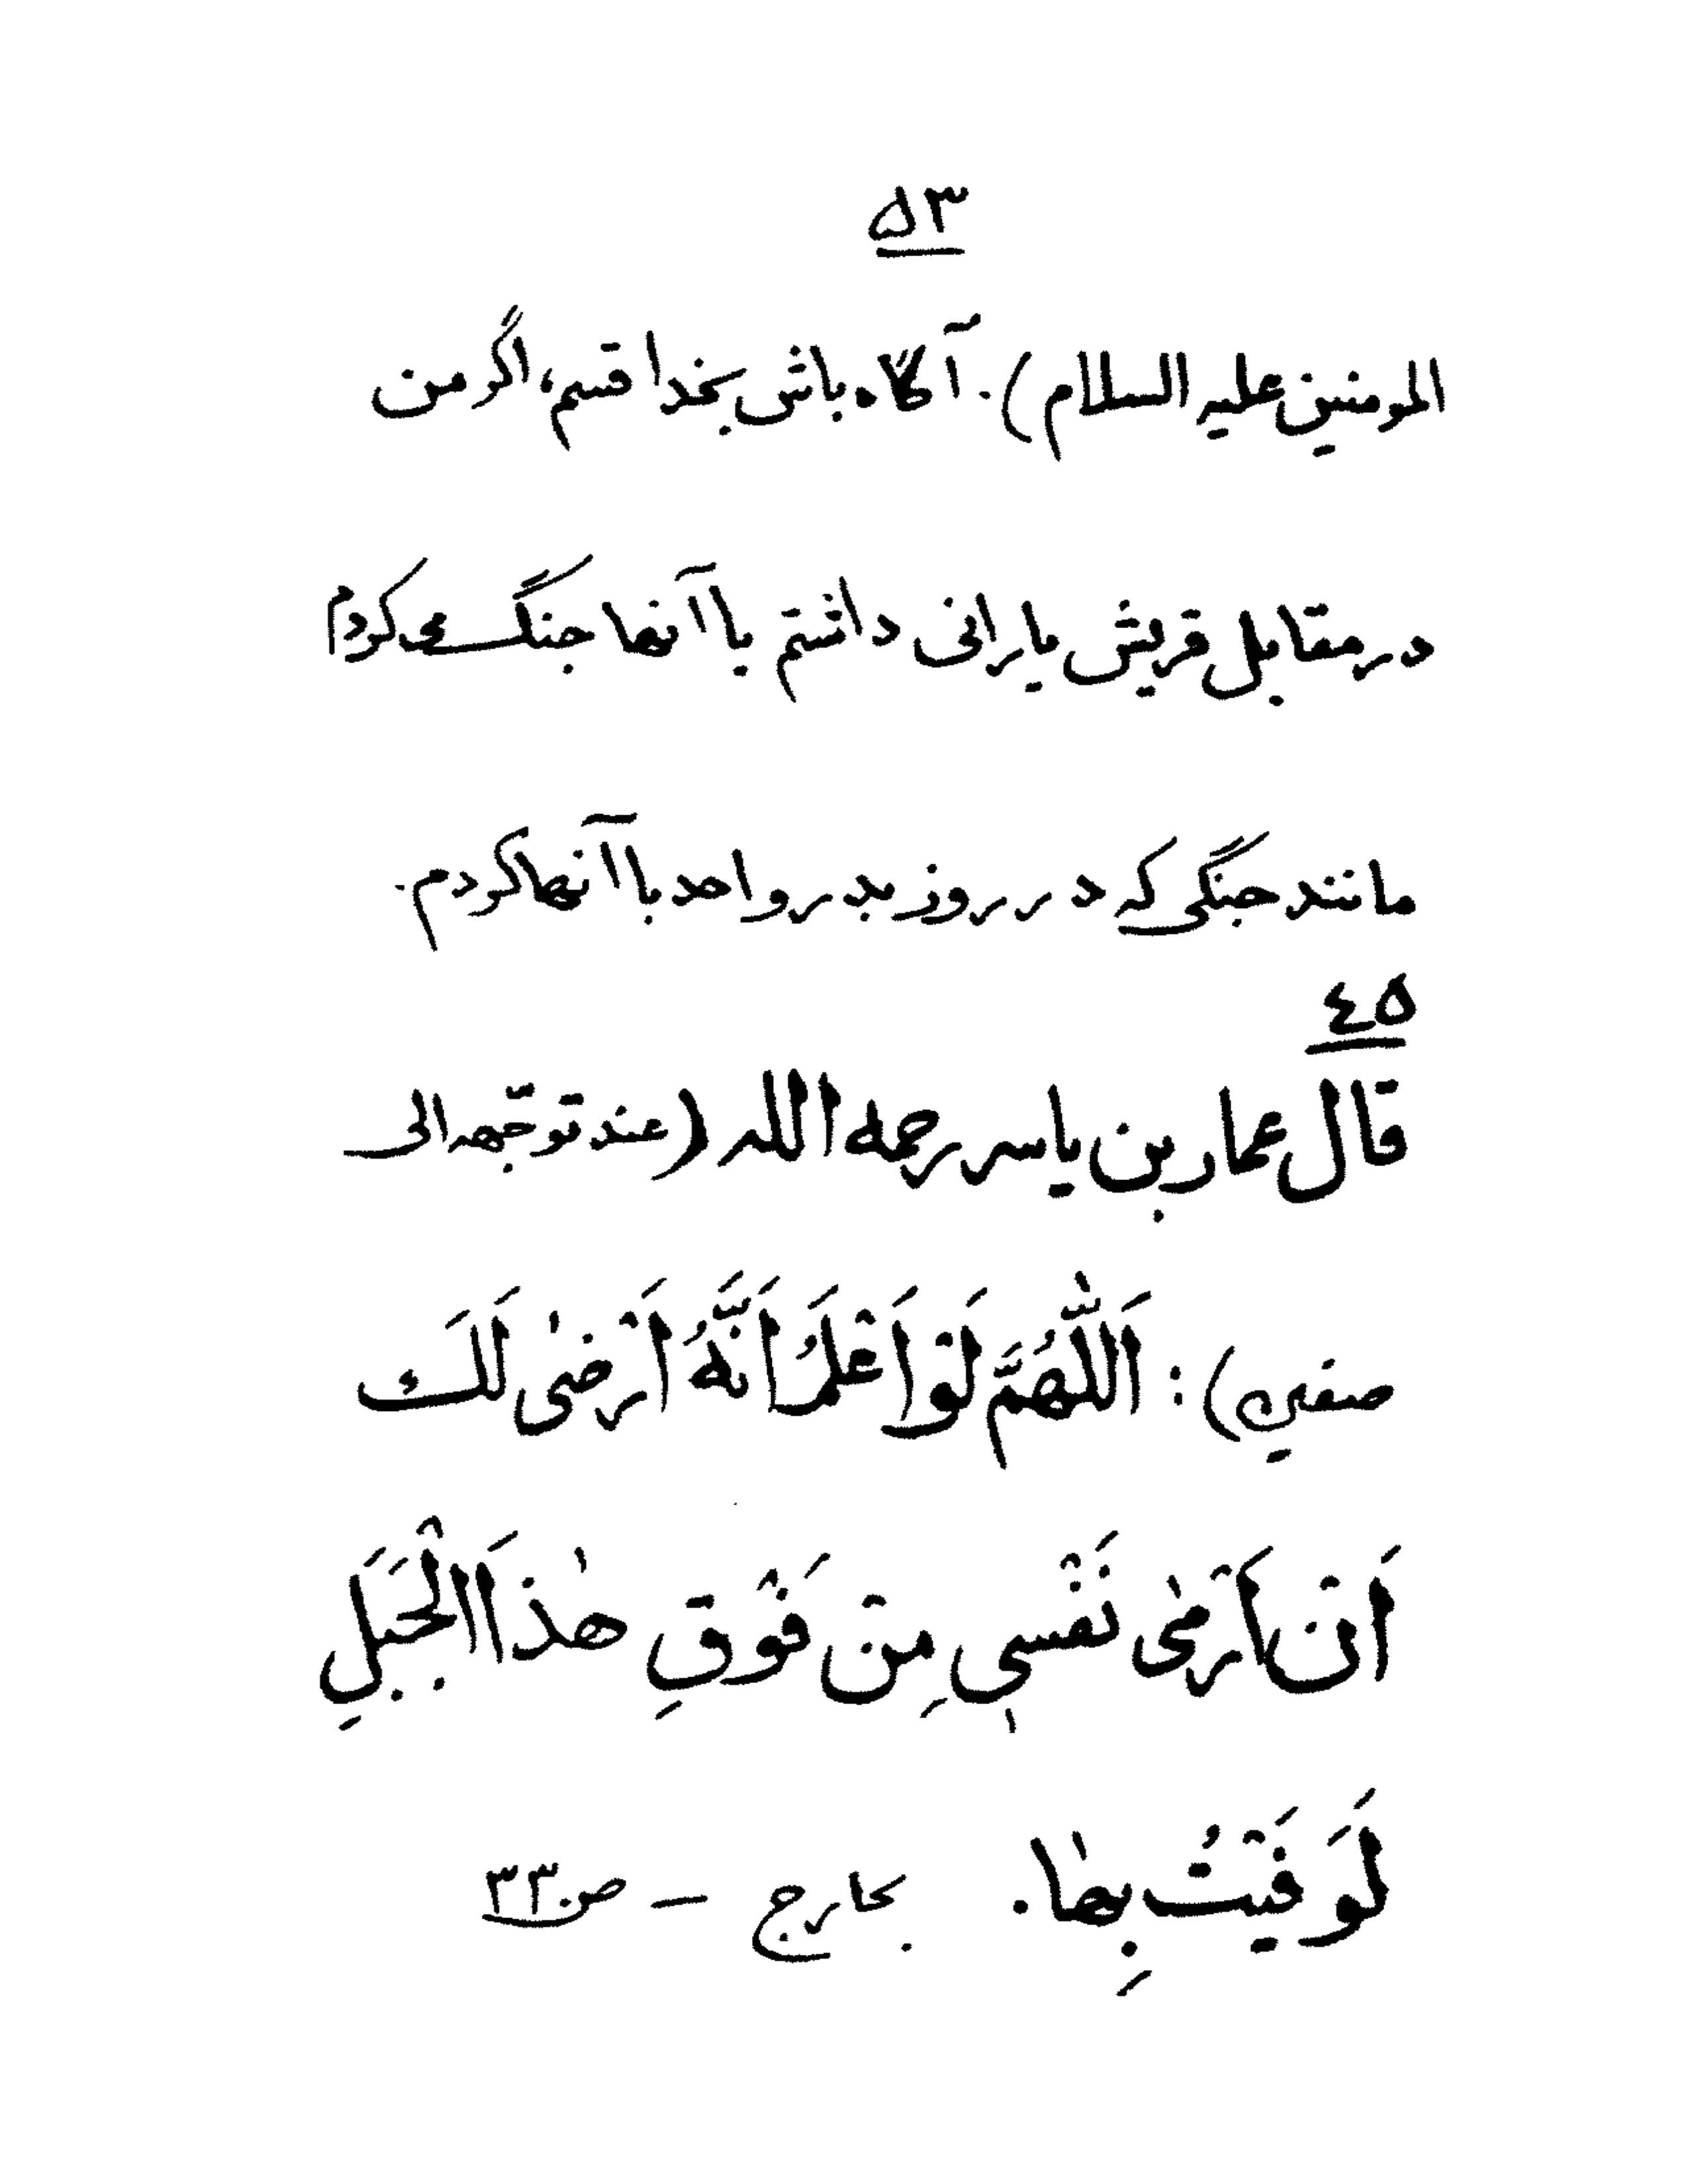 ۵۳
المومنین علیه السلام). آگاه باش بخدا قسم، اگر من
در مقابل قریش یارانی داشتم با آنها جنگ می کردم
مانند جنگی که در روز بدر و احد با آنها کردم.
٤٥
قال عمار بن یاسر رحمه الله (عند توجّهه الی
صفین): اَللّٰهُمَّ لَوْ اَعْلَمُ اَنَّهُ اَرْضیٰ لَكَ
اَنْ اَرْمیٰ نَفْسی مِنْ فَوْقِ هٰذَا الْجَبَلِ
لَوَفَیْتُ بِهٰا. بحار ج – ص ۳۳